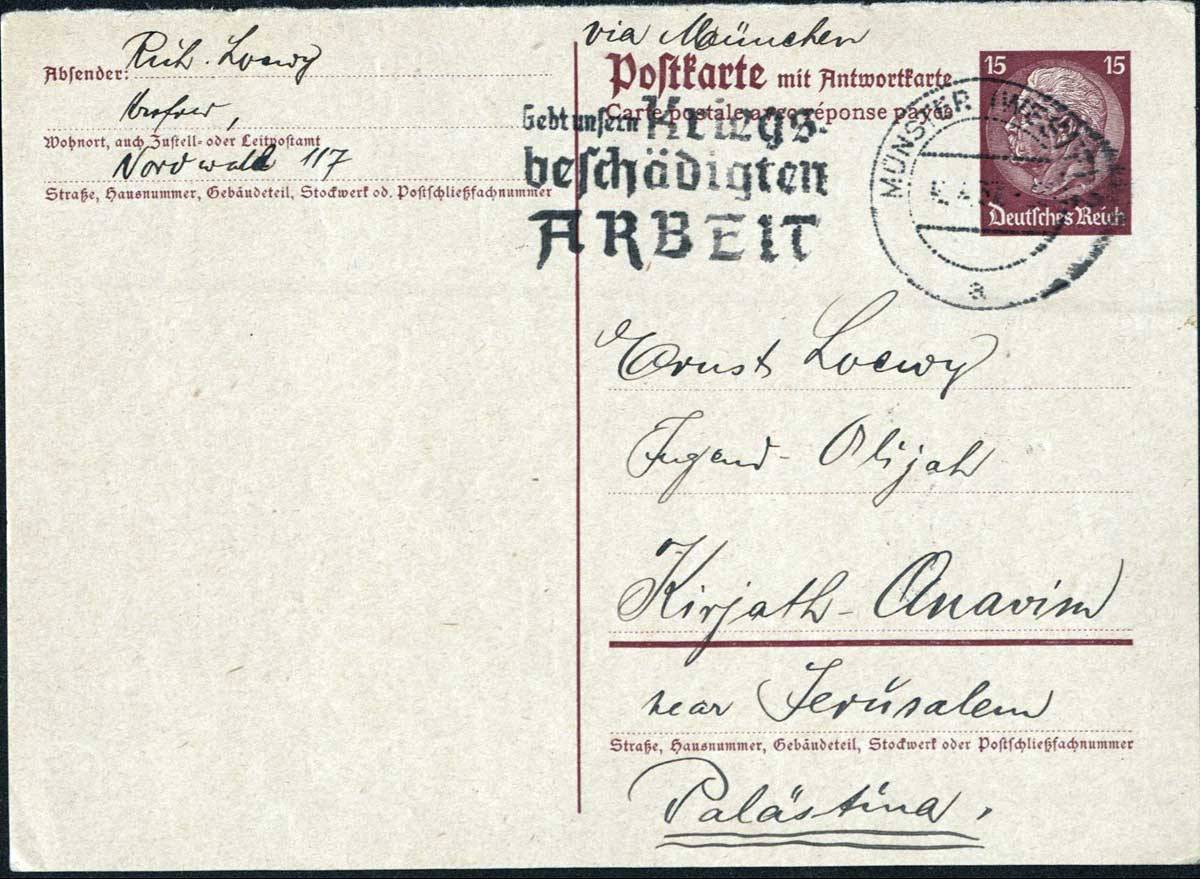 via München
Absender: Rich. Loewy
Krefeld,
Wohnort, auch Zustell- oder Leitpostamt
Nordwall 117
Straße, Hausnummer, Gebäudeteil, Stockwerk od. Postschließfachnummer
Postkarte mit Antwortkarte
Carte postale avec réponse payée
15 15
Deutsches Reich
Gebt unsern Kriegs-
beschädigten
ARBEIT
MÜNSTER (WESTF)
a
Ernst Loewy
Jugend-Alijah
Kirjath-Anavim
near Jerusalem
Straße, Hausnummer, Gebäudeteil, Stockwerk oder Postschließfachnummer
Palästina.